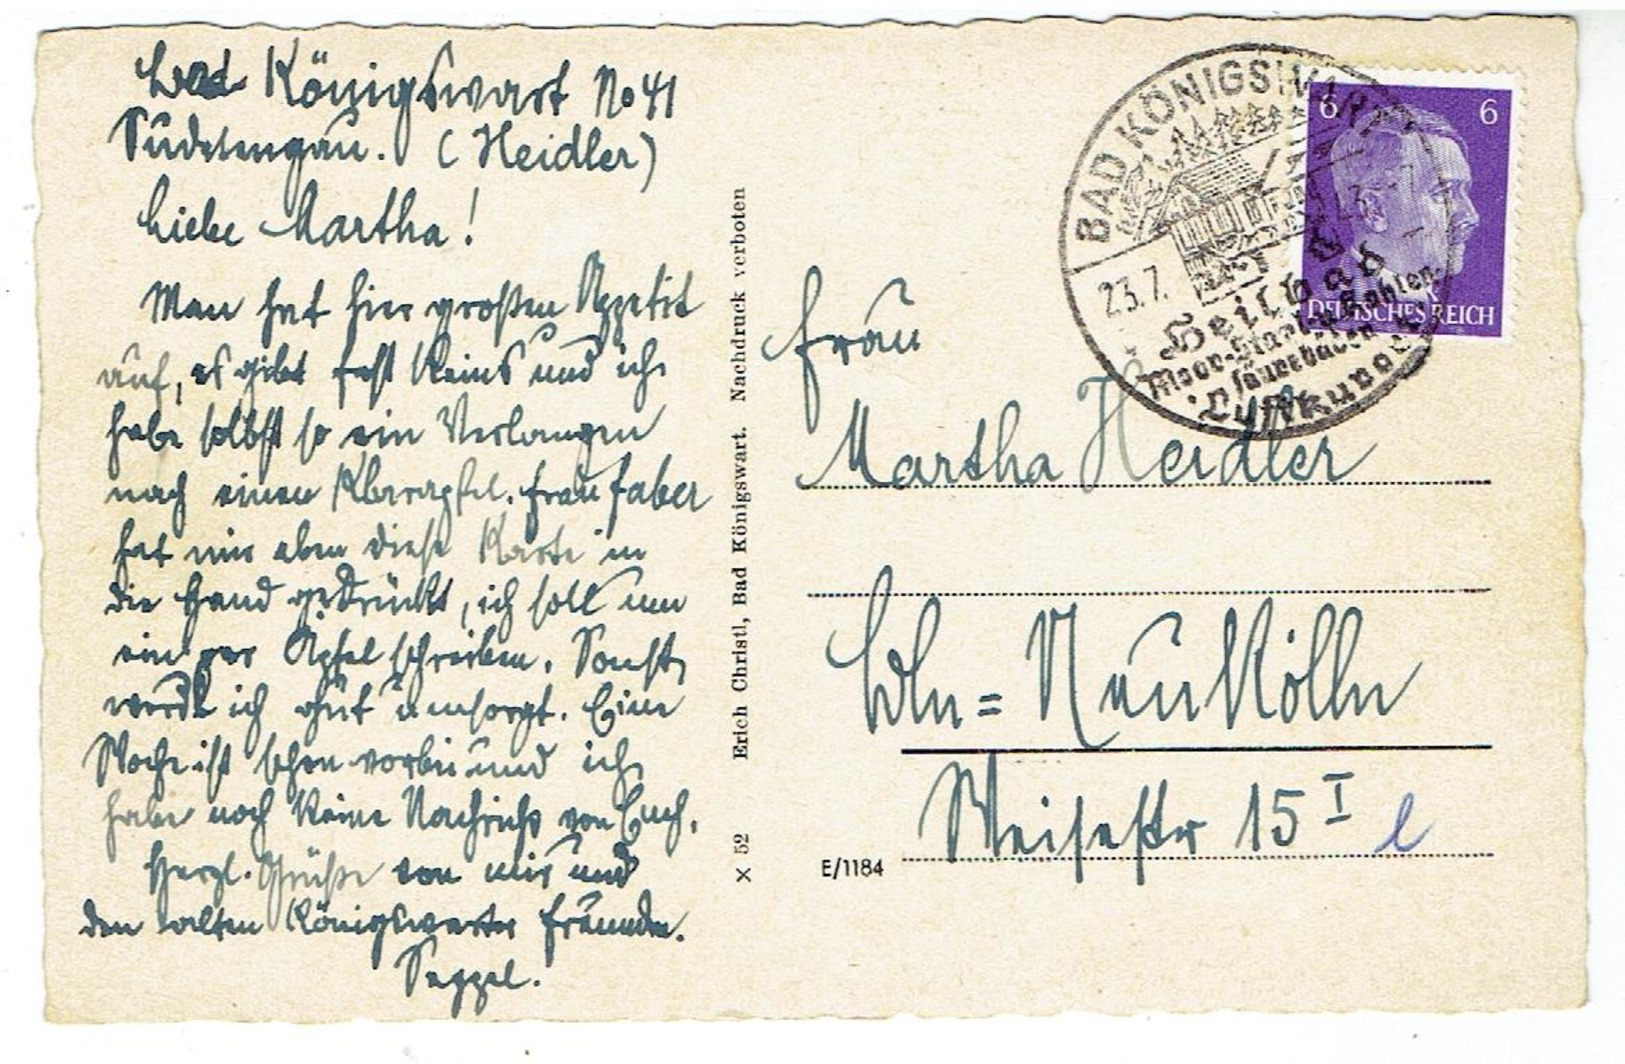 Bad Königswart No 41
Sudetengau. (Heidler)
Liebe Martha!
Man hat hier großen Appetit
auf, es gibt fast keins und ich
habe selbst so ein Verlangen
nach einen Klarapfel. Frau Faber
hat mir eben diese Karte in
die Hand gedrückt, ich soll um
ein par Äpfel schreiben. Sonst
werde ich gut umsorgt. Eine
Woche ist schon vorbei und ich
habe noch keine Nachricht von Euch.
Herzl. Grüße von mir und
den alten Königswarter Freunden.
Seppel.
X 52 Erich Christl, Bad Königswart. Nachdruck verboten
BAD KÖNIGSWART
23.7.
Heilbad
Moor-Stahl-Kohlen-
säurebäder
Luftkurort
6 6
DEUTSCHES REICH
Frau
Martha Heidler
Bln = Neukölln
Weisestr 15 I l
E/1184